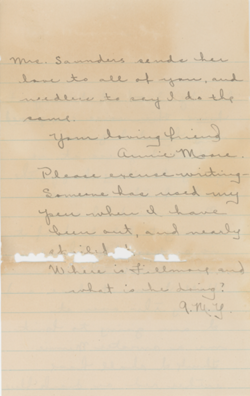 Mrs. Saunders sends her
love to all of you, and
needless to say I do the
same.
Your loving friend
Annie Moore.
Please excuse writing-
Someone has used my
pen when I have
been out, and nearly
Where is Fillmore and
what is he doing?
A.M.Y.